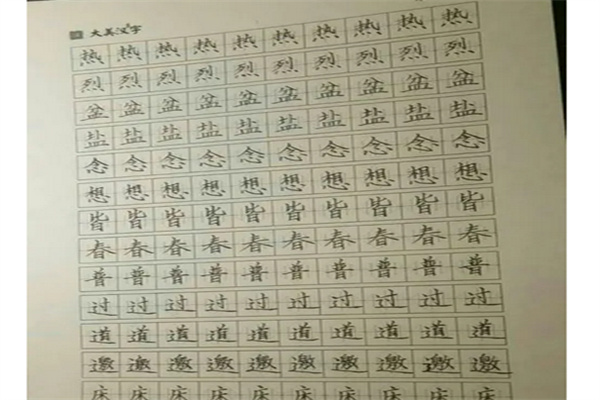 大美汉字
热热热热热热热热热热
烈烈烈烈烈烈烈烈烈烈
盆盆盆盆盆盆盆盆盆盆
盐盐盐盐盐盐盐盐盐盐
念念念念念念念念念念
想想想想想想想想想想
皆皆皆皆皆皆皆皆皆皆
春春春春春春春春春春
普普普普普普普普普普
过过过过过过过过过过
道道道道道道道道道道
邀邀邀邀邀邀邀邀邀邀
床床床床床床床床床床